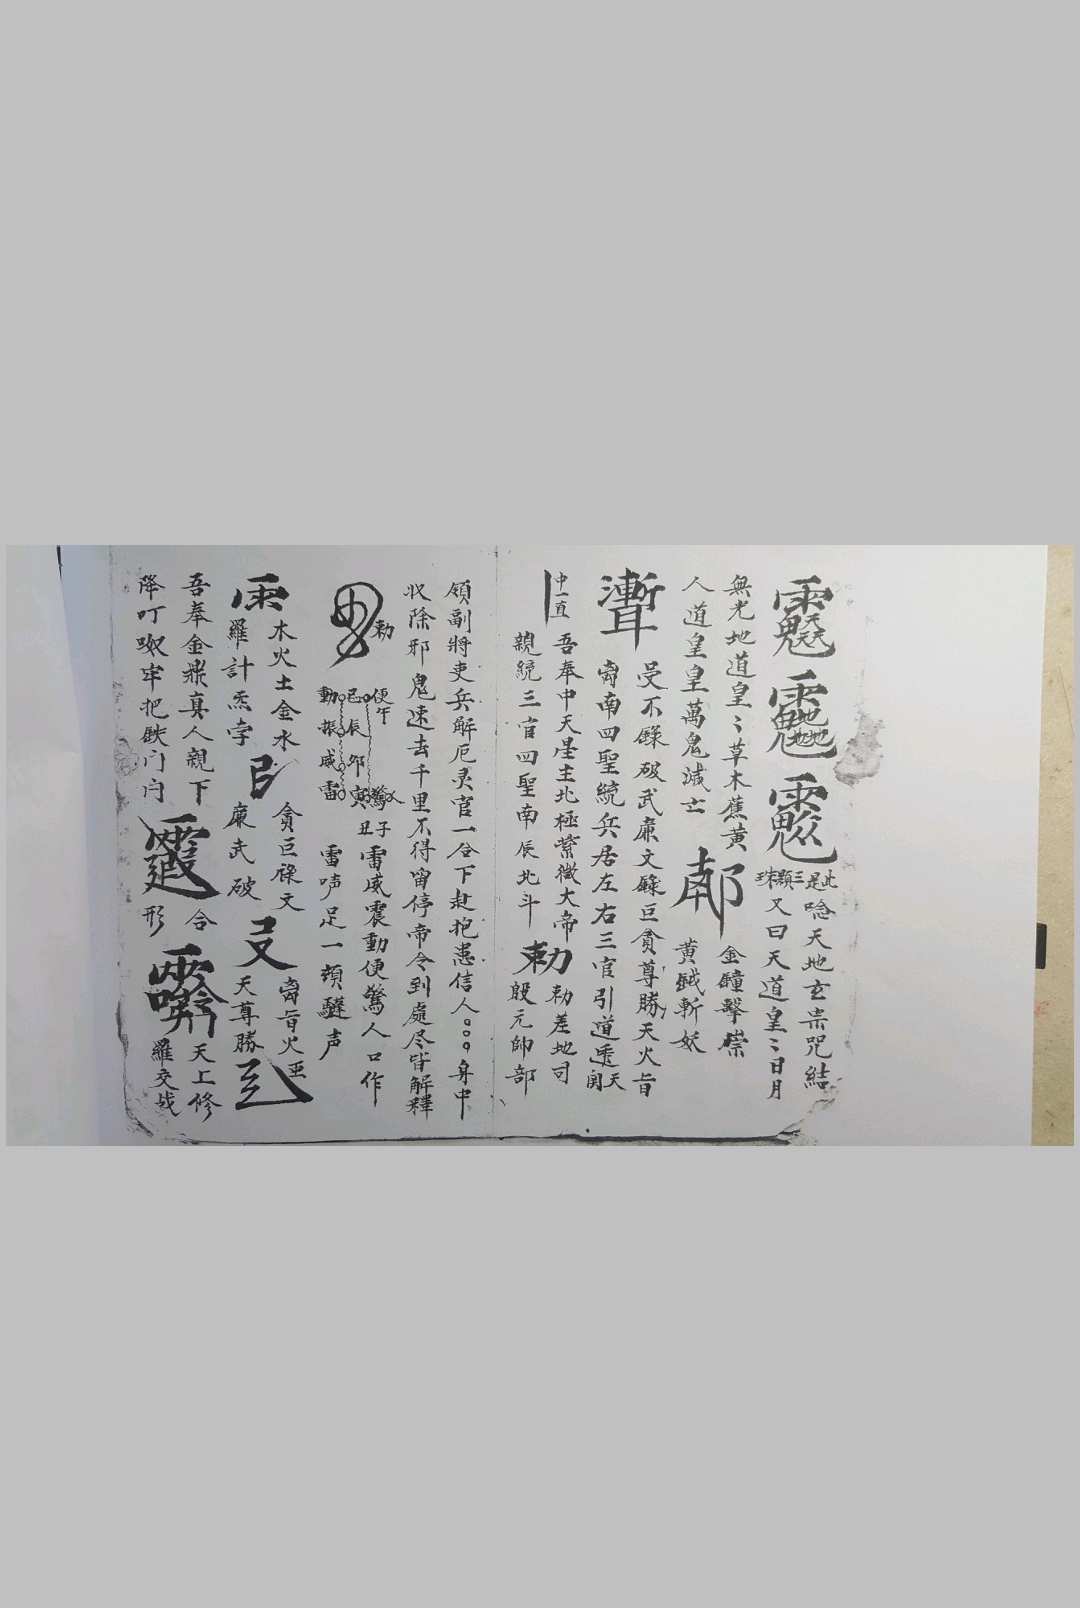 此是三顯珠
唸天地玄祟咒結
又曰天道皇〻日月
無光地道皇〻草木蕉黄
金鐘擊祟
人道皇皇萬鬼滅亡
黄鉞斬妖
受不籙破武亷文籙巨貪尊勝天火旨
南四聖統兵居左右三官引道
天
中一直
吾奉中天星主北極紫微大帝
勅
勅差地司
親統三官四聖南辰北斗
殷元帥部
領副將吏兵解厄灵官一合下赴抱患信人。。。身中
收除邪鬼速去千里不得留停帝令到處尽皆解釋
勅
便午
驚
子
雷威震動便驚人
口作
巳辰卯寅
丑
動振威雷
雷声足一頓
声
木火土金水
貪巨祿文
旨火
羅計炁孛
廉武破
天尊勝
吾奉金鼎真人親下
合
天上修
降叮
牢把鉄门闩
形
羅交战